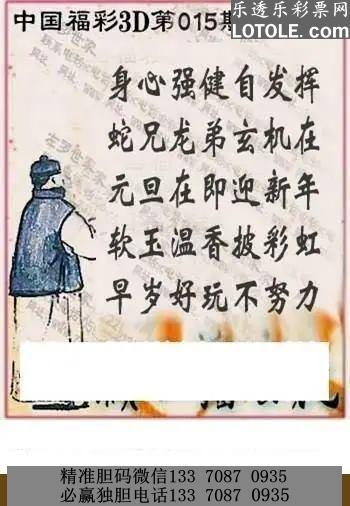 乐透乐彩票网
LOTOLE.COM
中国福彩3D第015期
身心强健自发挥
蛇兄龙弟玄机在
元旦在即迎新年
软玉温香披彩虹
早岁好玩不努力
精准胆码微信133 7087 0935
必赢独胆电话133 7087 0935